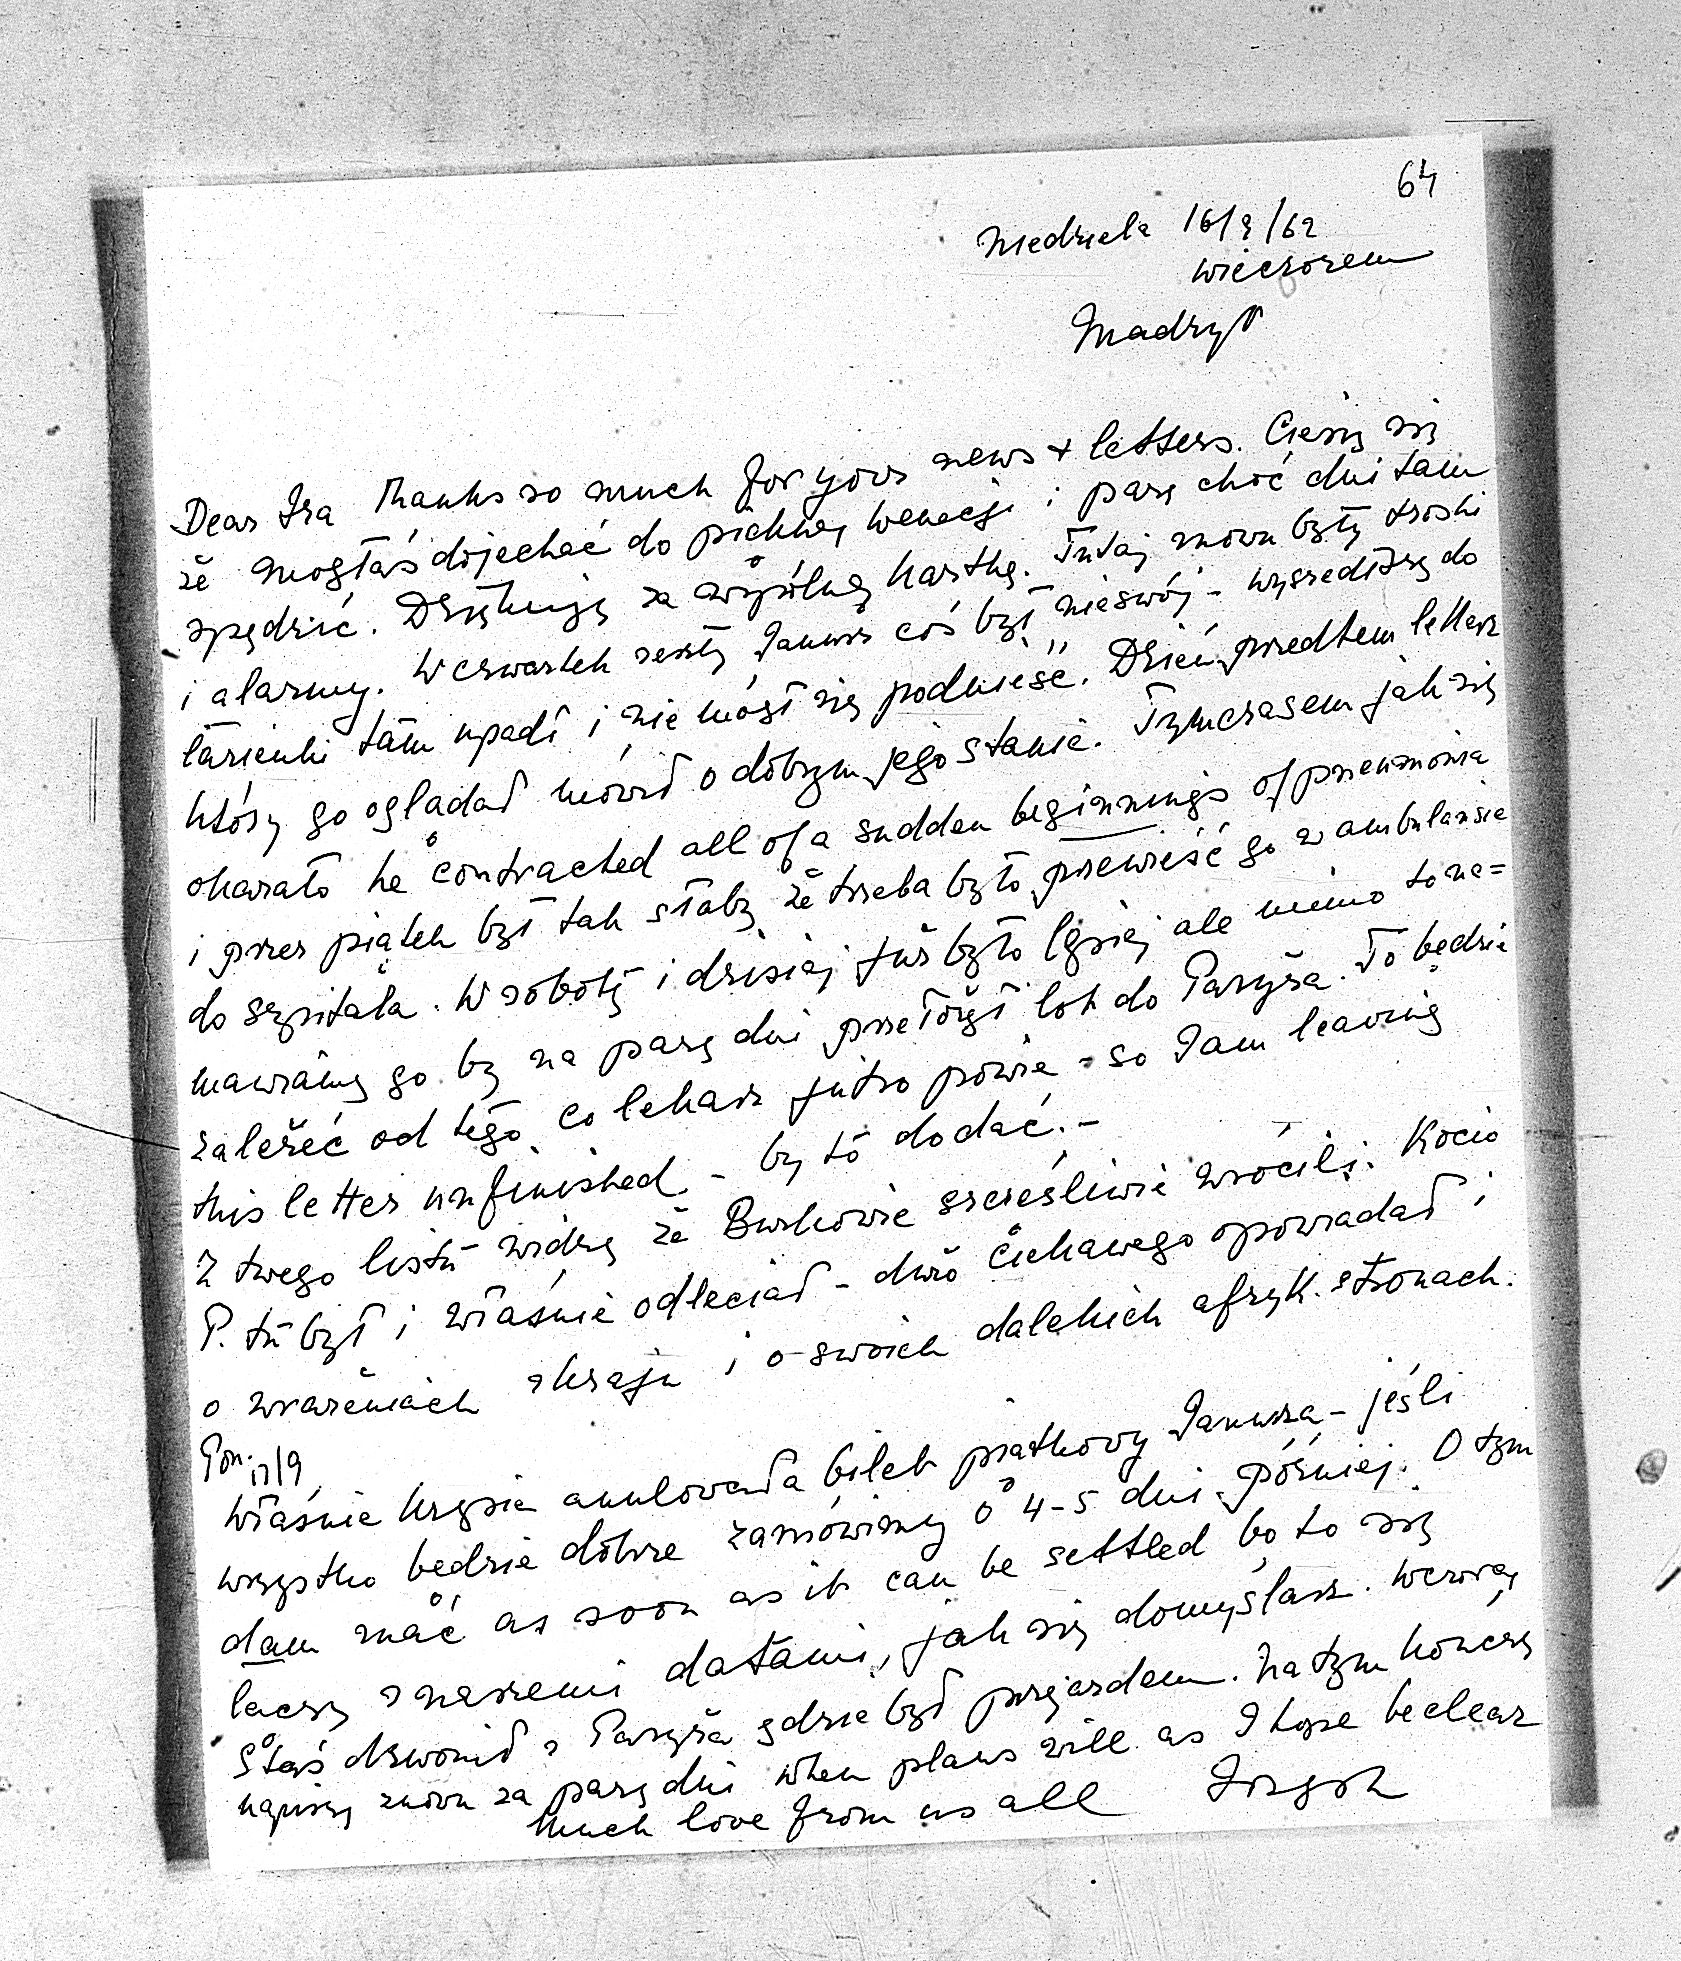 64
Niedziela 16/9/62
wieczorem
Madryt
Dear Ira Thanks so much for your news + letters. Cieszę się
że mogłaś dojechać do pięknej Wenecji i parę choć dni tam
spędzić. Dziękuję za wspólną kartkę. Tutaj znowu były troski
i alarmy. W czwartek zeszły Janusz coś był nieswój - wyszedłszy do
łazienki tam upadł i nie mógł się podnieść. Dzień przedtem lekarz
który go oglądał mówił o dobrym jego stanie. Tymczasem jak się
okazało he contracted all of a sudden beginnings of pneumonia
i przez piątek był tak słaby że trzeba było przewieść go w ambulansie
do szpitala. W sobotę i dzisiaj już było lepiej ale mimo to na=
mawiamy go by na parę dni przełożył lot do Paryża. To będzie
zależeć od tego co lekarz jutro powie - so I am leaving
this letter unfinished - by to dodać. -
Z twego listu widzę że Burkowie szczęśliwie wrócili. Kocio
P. tu był i właśnie odleciał - dużo ciekawego opowiadał i
o wrażeniach z kraju i o swoich dalekich afryk. stronach.
Pon. 17/9
Właśnie Krysia anulowała bilet piątkowy Janusza - jeśli
wszystko będzie dobrze zamówimy o 4-5 dni później. O tym
dam znać as soon as it can be settled bo to się
łączy z naszemi datami, jak się domyślasz. Wczoraj
Staś dzwonił z Paryża gdzie był przejazdem. Na tym kończę
napiszę znowu za parę dni when plans will as I hope be clear
Much love from us all Józyk